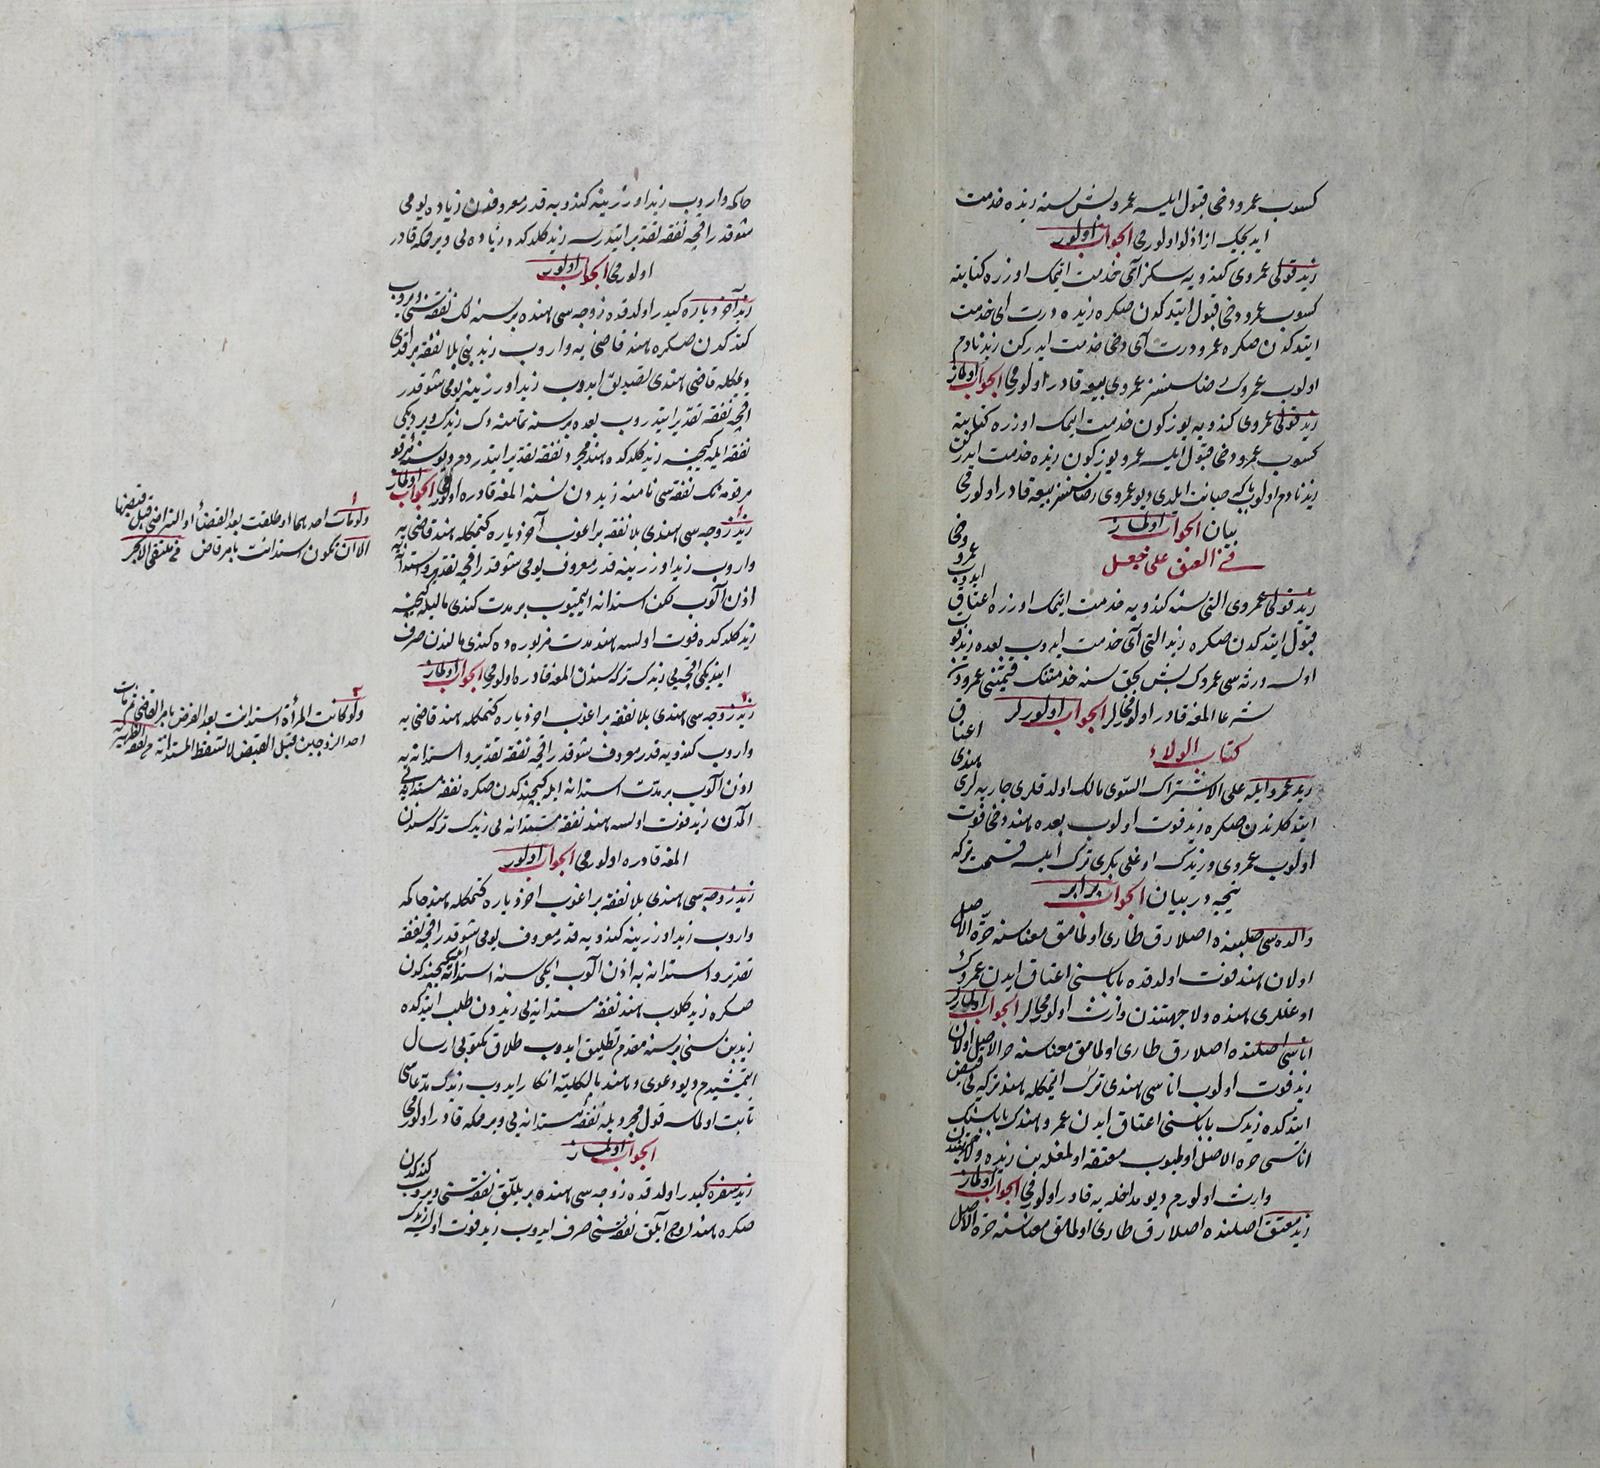 كسوب عمرو دخى قبول ايلسه عمرو بش سنه زيده خدمت
ايديجك ازاد اولورمى الجواب اولور
زيد قولى عمروى كندويه سكز آى خدمت ايتمك اوزره كتابته
كسوب عمرو دخى قبول ايتدكدن صكره زيده درت اى خدمت
ايتدكدن صكره عمرو درت آى دخى خدمت ايدركن زيد نادم
اولوب عمروك رضاسنسز عمروى بيعه قادر اولورمى الجواب اولماز
زيد قولى عمروى كندويه يوز كون خدمت ايتمك اوزره كتابته
كسوب عمرو دخى قبول ايلسه عمرو يوز كون زيده خدمت ايدركن
زيد نادم اولوب عمروى رضاسنسز بيعه قادر اولورمى
بيان الجواب اولماز
فى العتق على جعل
زيد قولى عمروى التى سنه كندويه خدمت ايتمك اوزره اعتاق ايدوب عمرو دخى
قبول ايتدكدن صكره زيد التى آى خدمت ايدوب بعده زيد فوت
اولسه ورثه سى عمروك بش بچق سنه خدمتنك قيمتنى عمرودن
شرعا المغه قادر اولورلرمى الجواب اولورلر
كتاب الولاء
زيد عمرو ايله على الاشتراك السوى مالك اولدقلرى جاريه لرى هندى اعتاق
ايتدكلرندن صكره زيد فوت اولوب بعده هند دخى فوت
اولوب عمروى و زيدك اوغلى بكرى ترك ايلسه قسمت تركه
نيجه در بيان الجواب برابر
والده سى صلبنده اصلا رق طارى اولمامق معناسنه حرة الاصل
اولان هند فوت اولدقده باباسنى اعتاق ايدن عمروك
اوغللرى هنده ولا جهتندن وارث اولورلرمى الجواب اولمازلر
اناسى اصلنده اصلا رق طارى اولمامق معناسنه حر الاصل اولان
زيد فوت اولوب اناسى هندى ترك ايتمكله هند تركه يى قبض
ايتدكده زيدك باباسنى اعتاق ايدن عمرو هندك باباسنك
اناسى حرة الاصل اولميوب معتقه اولمغله بن زيده ولا جهتندن
وارث اولورم ديو مداخله يه قادر اولورمى الجواب اولماز
زيد معتق اصلنده اصلا رق طارى اولمامق معناسنه حرة الاصل
حاكمه واروب زيد اوزرينه كندويه قدر معروفدن زياده يومى
شو قدر اقچه نفقه تقدير ايتدرسه زيد كلدكده زياده يى ويرمكه قادر
اولورمى الجواب اولور
زيد آخر دياره كيدر اولدقده زوجه سى هنده بر سنه لك نفقه سنى ويروب
كتدكدن صكره هند قاضى يه واروب زيد بنى بلا نفقه براقدى
ديمكله قاضى هندى تصديق ايدوب زيد اوزرينه يومى شو قدر
اقچه نفقه تقدير ايتدروب بعده بر سنه تمامنه دك زيدك ويرديكى
نفقه ايله كچينوب زيد كلدكده هند مجرد نفقه تقدير ايتدردم ديو سنه
مرقومه نك نفقه سى نامنه زيددن نسنه المغه قادره اولورمى الجواب اولماز
زيد زوجه سى هندى بلا نفقه براغوب آخر دياره كتمكله هند قاضى يه
واروب زيد اوزرينه قدر معروف يومى شو قدر اقچه نفقه تقدير و استدانه يه
اذن آلوب لكن استدانه ايتميوب بر مدت كندى ماليله كچينوب
زيد كلدكده فوت اولسه هند مدت مزبوره ده كندى مالندن صرف
ايتديكى اقچه يى زيدك تركه سندن المغه قادره اولورمى الجواب اولماز
زيد زوجه سى هندى بلا نفقه براغوب اخر دياره كتمكله هند قاضى يه
واروب كندويه قدر معروف شو قدر اقچه نفقه تقدير و استدانه يه
اذن آلوب بر مدت استدانه ايله كچيندكدن صكره نفقه مستدانه يى
المدن زيد فوت اولسه هند نفقه مستدانه يى زيدك تركه سندن
المغه قادره اولورمى الجواب اولور
زيد زوجه سى هندى بلا نفقه براغوب اخر دياره كتمكله هند حاكمه
واروب زيد اوزرينه كندويه قدر معروف يومى شو قدر اقچه نفقه
تقدير و استدانه يه اذن آلوب ايكى سنه استدانه ايله كچيندكدن
صكره زيد كلوب هند نفقه مستدانه يى زيددن طلب ايتدكده
زيد بن سنى بر سنه مقدم تطليق ايدوب طلاق مكتوبى ارسال
ايتمشيدم ديو دعوى و هند بالكليه انكار ايدوب زيدك مدعاسى
ثابت اولماسه قول مجرديله نفقه مستدانه يى ويرمكه قادر اولورمى
الجواب اولماز
زيد سفره كيدر اولدقده زوجه سى هنده بر ييللق نفقه سنى ويروب كتدكدن
صكره هند اوچ آيلق نفقه سنى صرف ايدوب زيد فوت اولسه زيدك
ولو مات احدهما او طلقت بعد القضاء او التراضى قبل قبضها
الا ان يكون استدانت بامر قاض فى ملتقى الابحر
ولو كانت المرأة استدانت بعد الفرض بامر القاضى ثم مات
احد الزوجين قبل القبض لا تسقط المستدانة